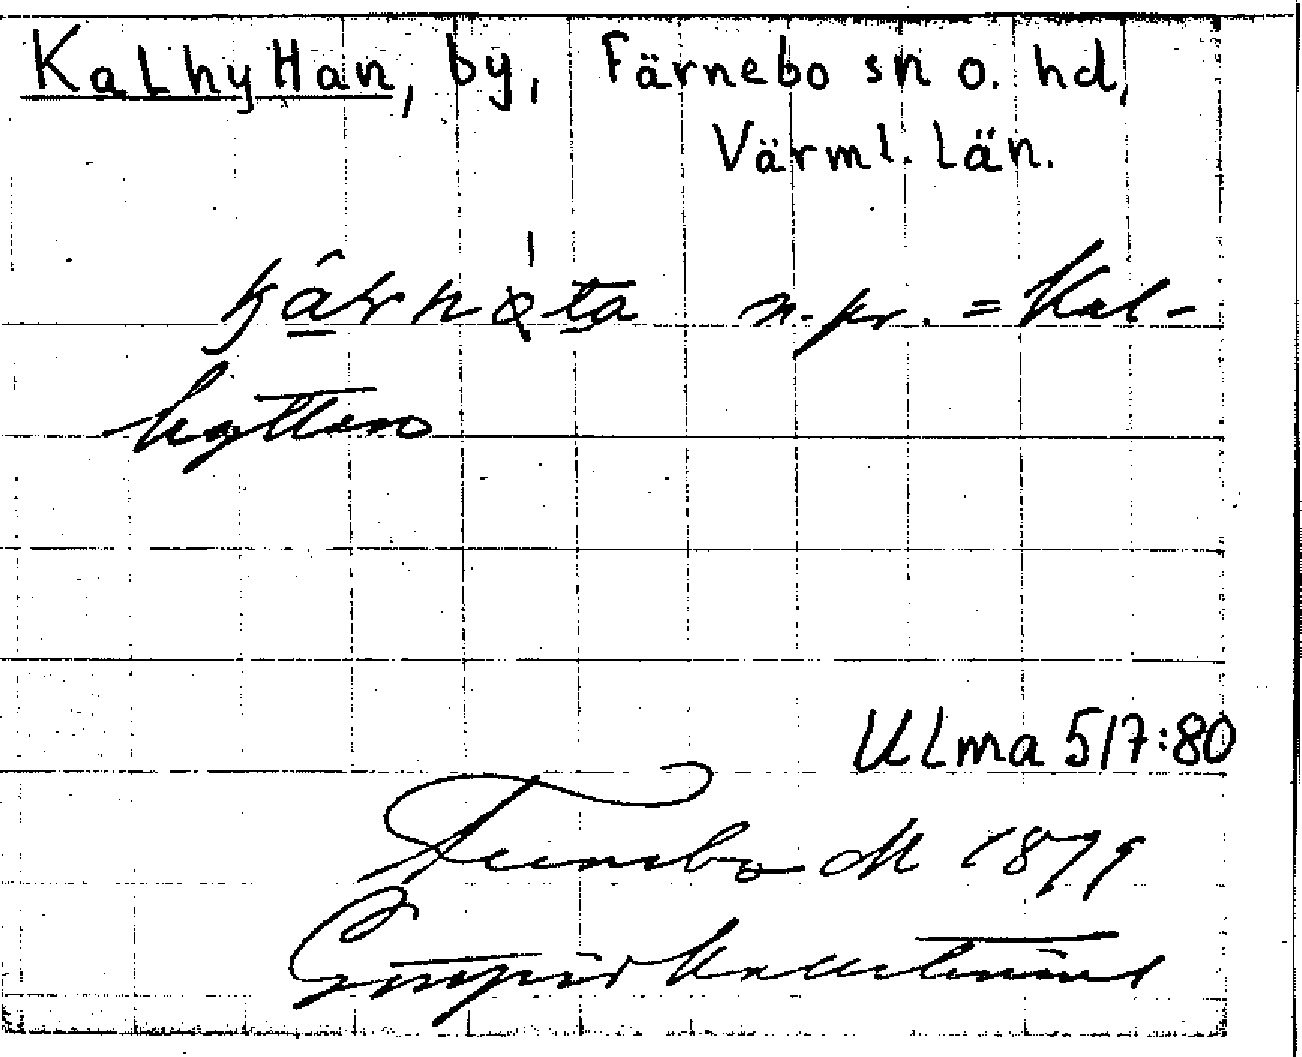 Kalhyttan, by, Färnebo sn o. hd,
Värml. län.
n. pr. = Kal-
hyttan
ULma 517:80
Fernebo M 1879